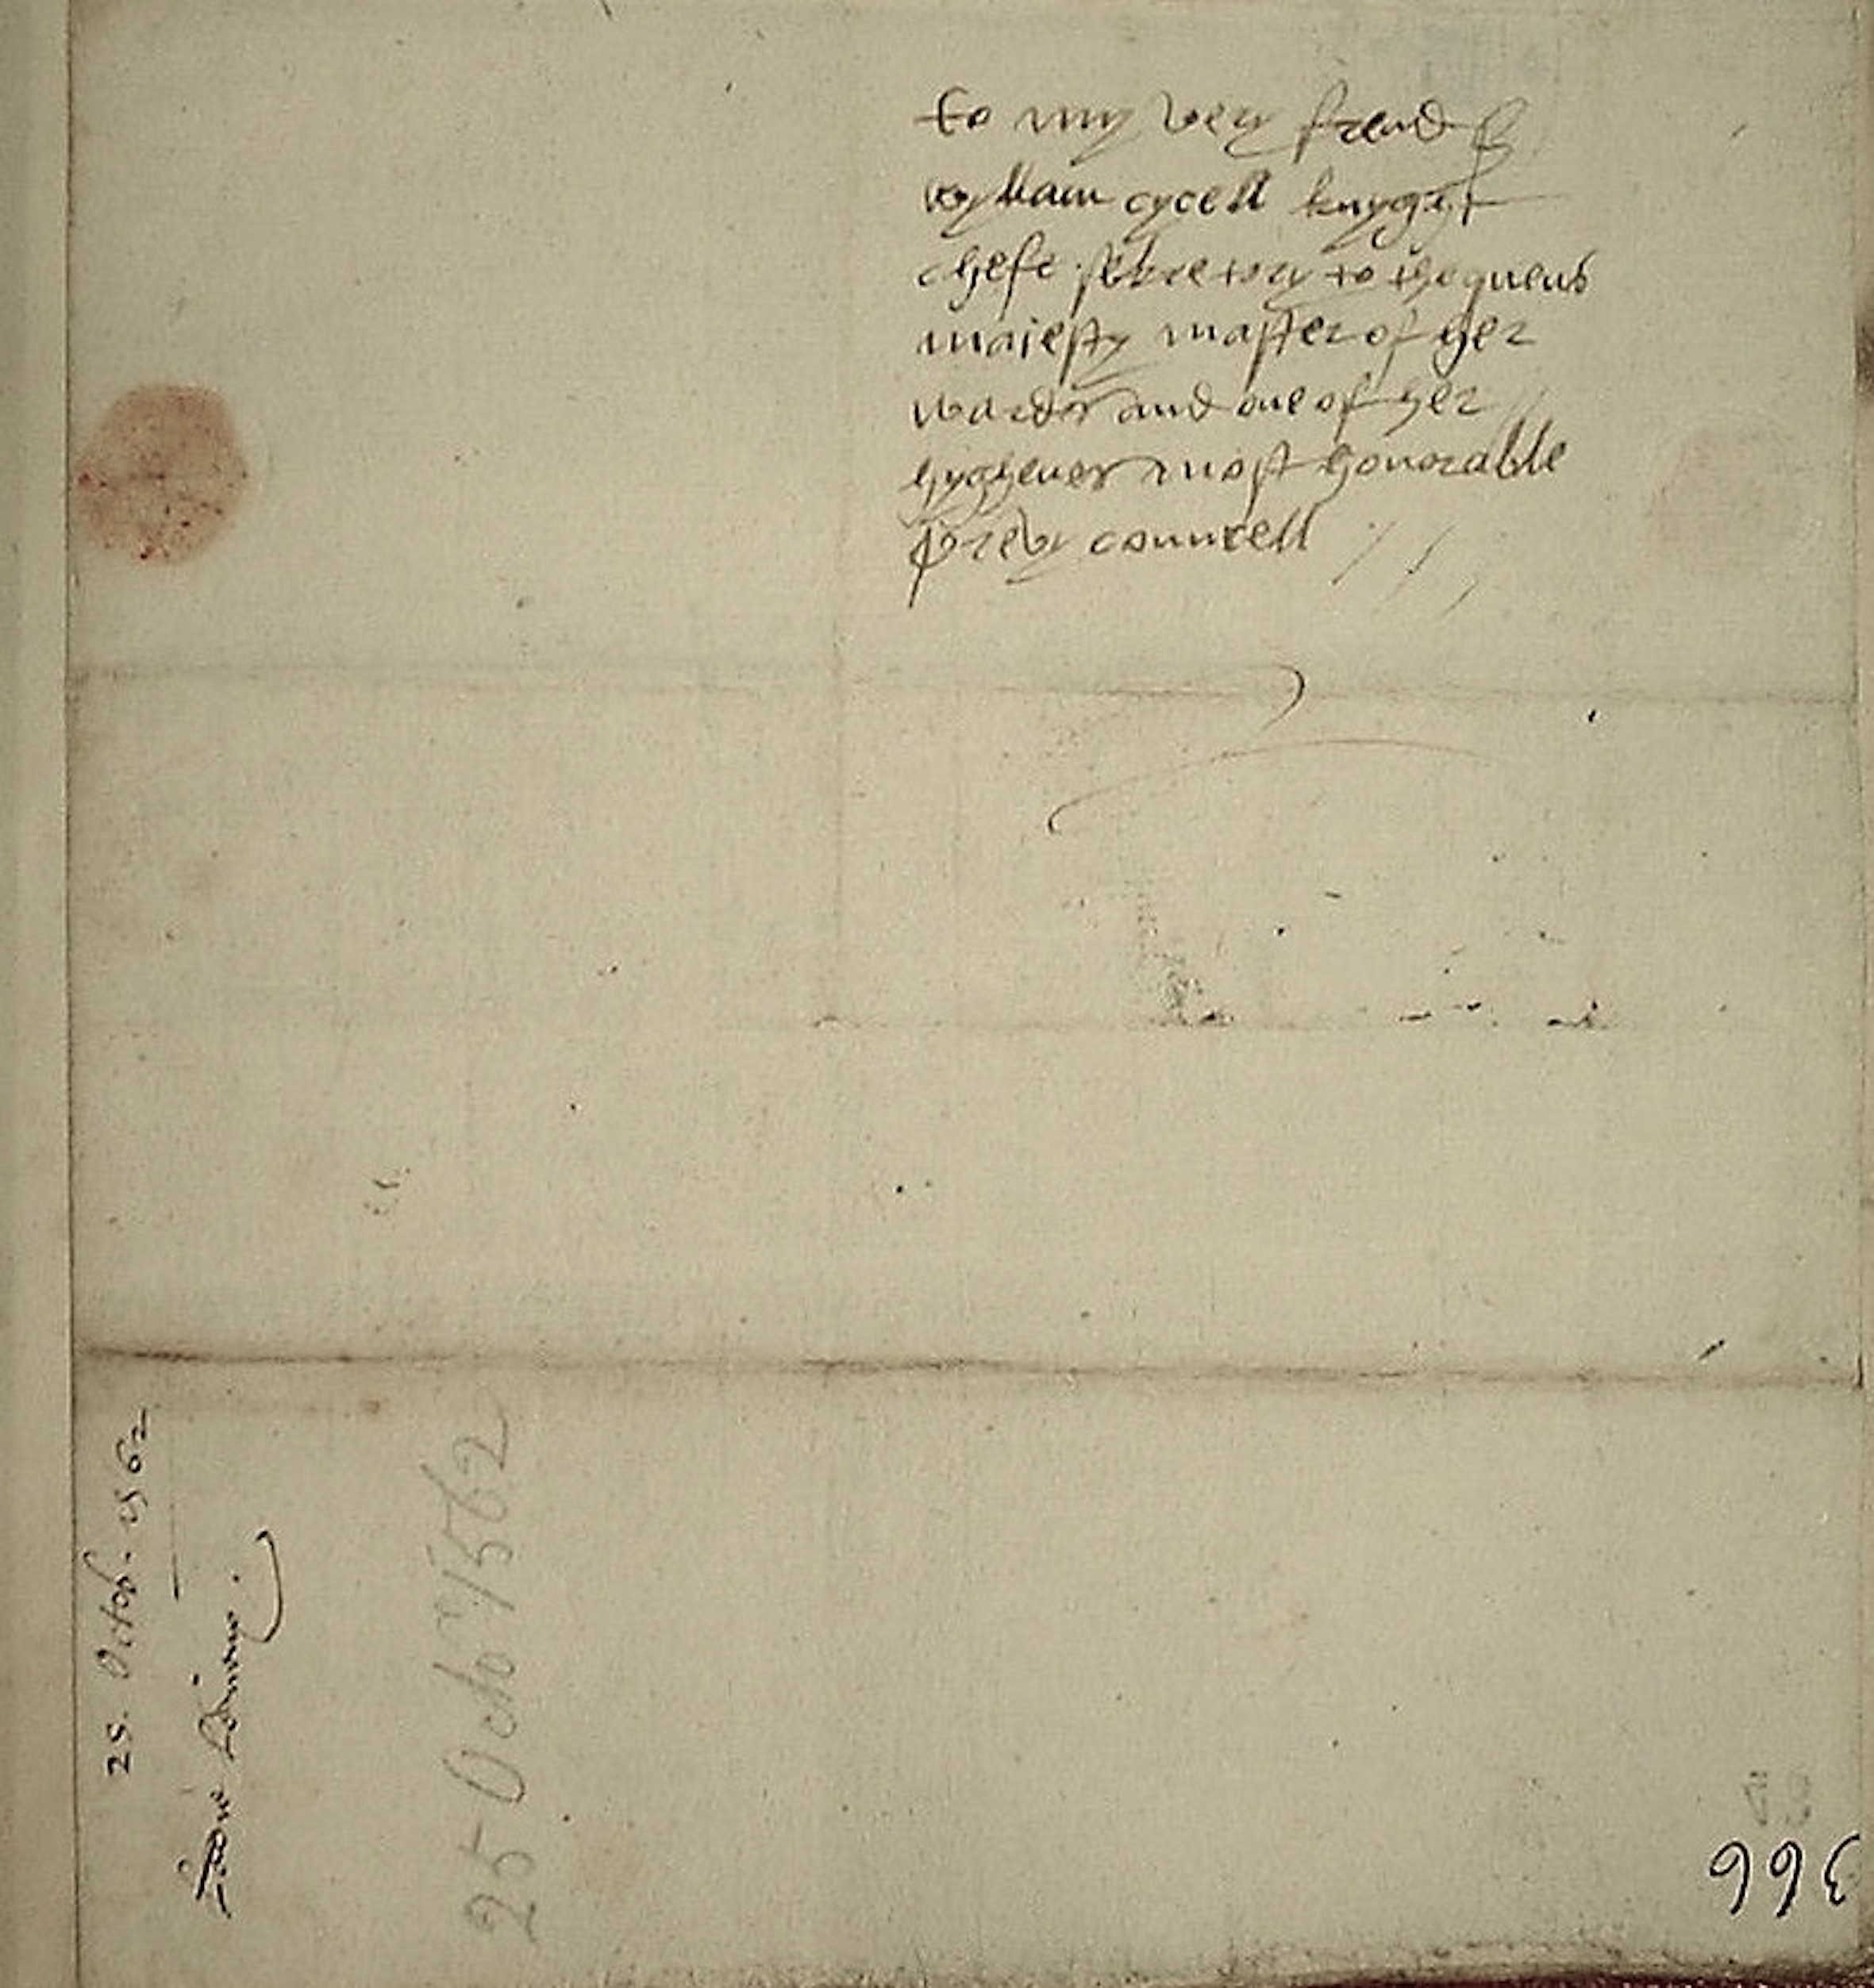 to my very frend
wylliam cycell knyght
chefe sekretory to the quens
maiesty master of her
wardes and one of her
hyghenes most honorable
prevy councell
25. Octob. 1562
25 Octo 1562
366